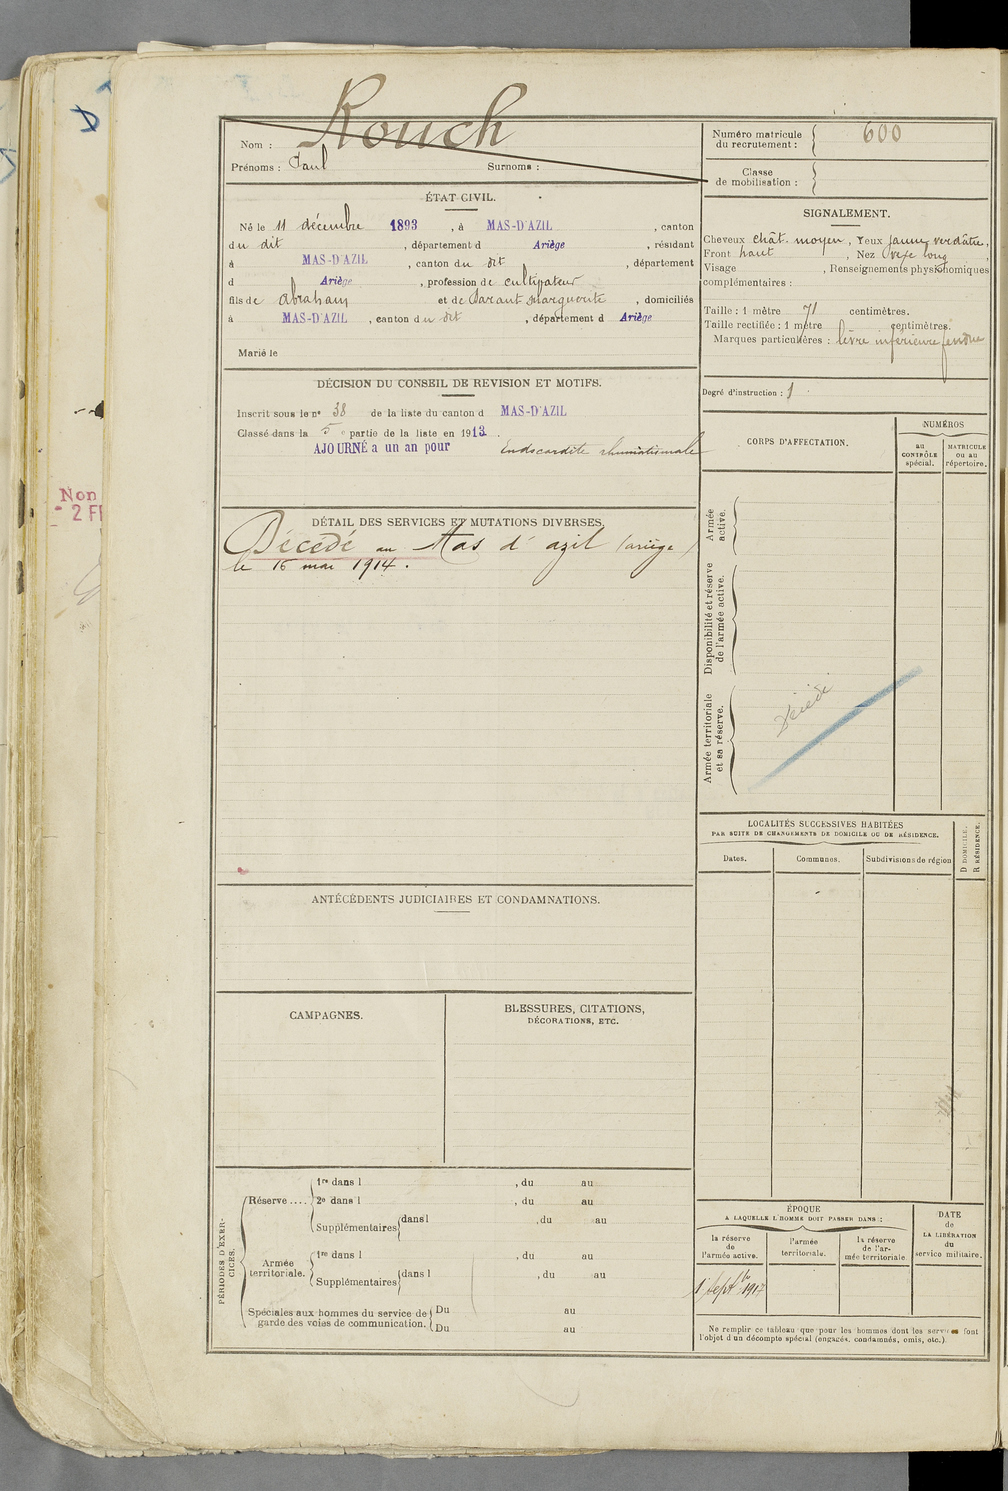 Rouch
Nom :
Prénoms : Paul Surnoms :
Numéro matricule du recrutement : 600
Classe de mobilisation :
ÉTAT CIVIL.
Né le 11 décembre 1893, à MAS-D'AZIL, canton
du dit, département d Ariège, résidant
à MAS-D'AZIL, canton du dit, département
d Ariège, profession de cultivateur
fils de Abraham et de Marguerite, domiciliés
à MAS-D'AZIL, canton du dit, département d Ariège
Marié le
SIGNALEMENT.
Cheveux chât. moyen, Yeux jaune verdâtre,
Front haut, Nez vexe long,
Visage , Renseignements physionomiques
complémentaires :
Taille : 1 mètre 71 centimètres.
Taille rectifiée : 1 mètre centimètres.
Marques particulières : lèvre inférieure fendue
Degré d'instruction : 1
DÉCISION DU CONSEIL DE REVISION ET MOTIFS.
Inscrit sous le n° 38 de la liste du canton d MAS-D'AZIL
Classé dans la 5e partie de la liste en 1913.
AJOURNÉ a un an pour Endocardite rhumatismale
CORPS D'AFFECTATION.
NUMÉROS
au CONTRÔLE spécial.
MATRICULE ou au répertoire.
Armée active.
Disponibilité et réserve de l'armée active.
Armée territoriale et sa réserve.
Décédé
DÉTAIL DES SERVICES ET MUTATIONS DIVERSES.
Décédé au Mas d'azil (ariège)
le 16 mai 1914.
Non
- 2 F
LOCALITÉS SUCCESSIVES HABITÉES
PAR SUITE DE CHANGEMENTS DE DOMICILE OU DE RÉSIDENCE.
Dates. Communes. Subdivisions de région
D DOMICILE.
R RÉSIDENCE.
ANTÉCÉDENTS JUDICIAIRES ET CONDAMNATIONS.
CAMPAGNES.
BLESSURES, CITATIONS,
DÉCORATIONS, ETC.
PÉRIODES D'EXERCICES.
Réserve ....
1re dans l , du au
2e dans l , du au
Supplémentaires dans l , du au
Armée territoriale.
1re dans l , du au
Supplémentaires dans l , du au
Spéciales aux hommes du service de garde des voies de communication.
Du au
Du au
ÉPOQUE
A LAQUELLE L'HOMME DOIT PASSER DANS :
la réserve de l'armée active.
l'armée territoriale.
la réserve de l'armée territoriale.
DATE de LA LIBÉRATION du service militaire.
1r Septbre 1917
Ne remplir ce tableau que pour les hommes dont les services font
l'objet d'un décompte spécial (engagés, condamnés, omis, etc.).